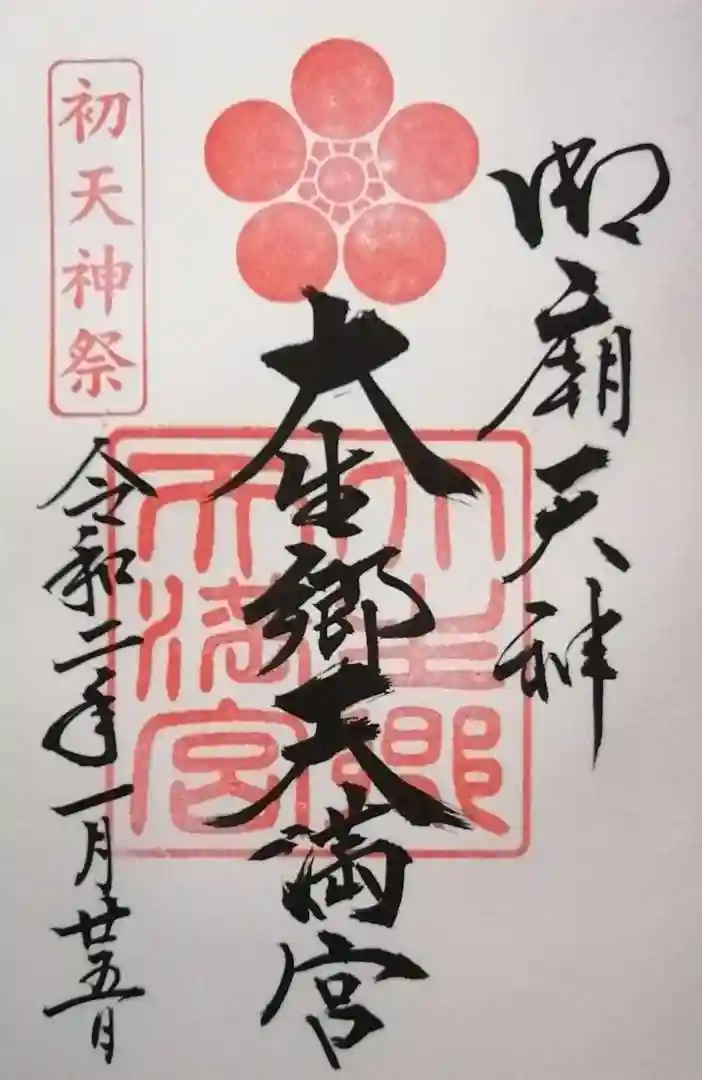 御廟天神
大生郷天満宮
大生郷
天満宮
初天神祭
令和二年一月廿五日